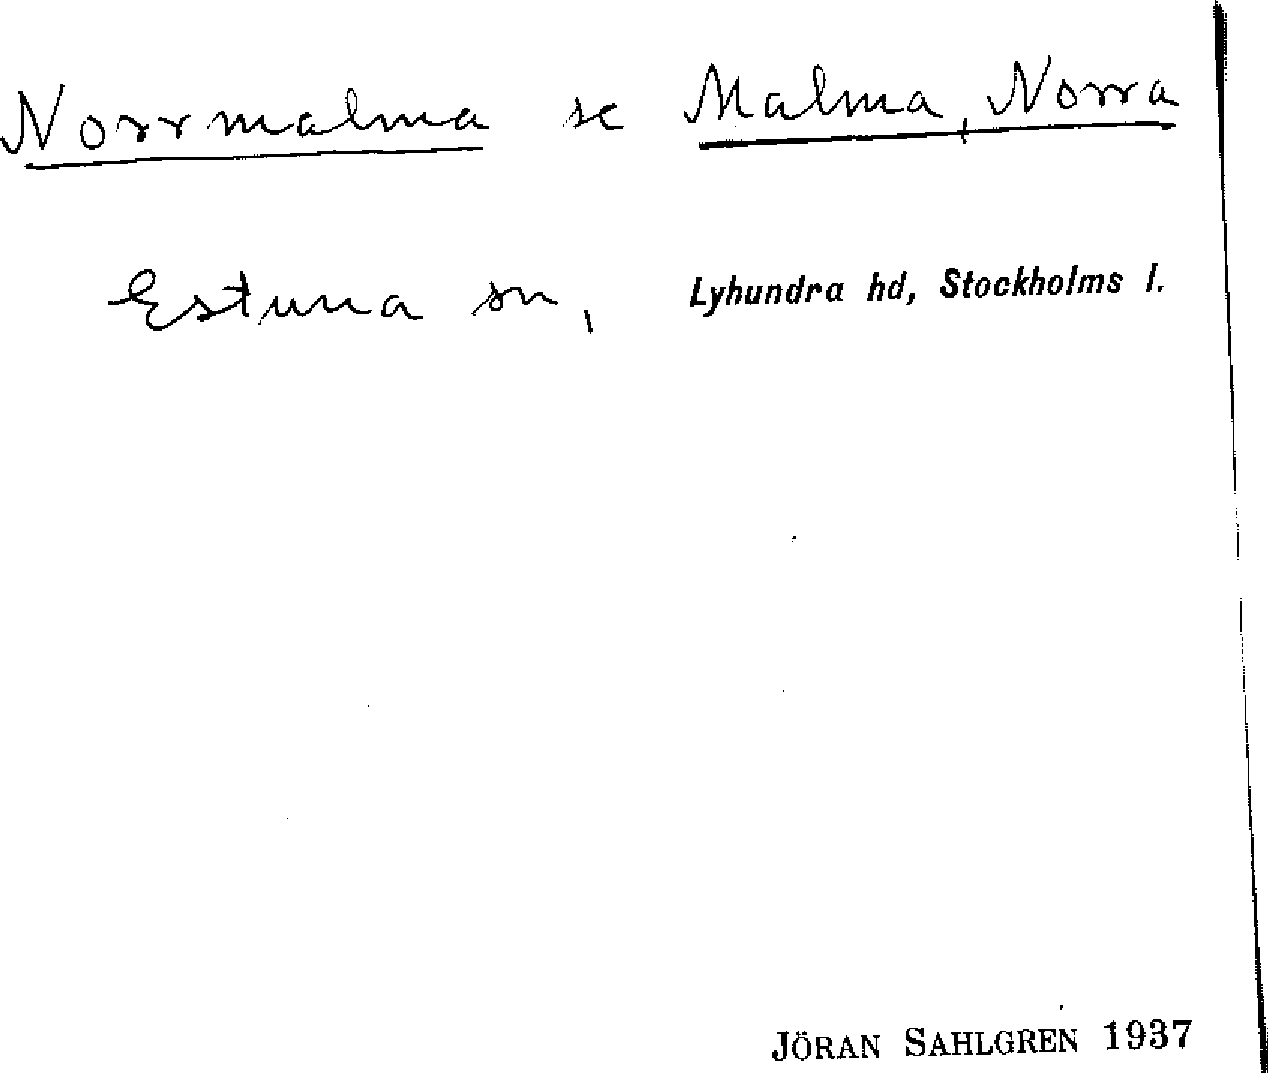 Norrmalma se Malma, Norra
Estuna sn, Lyhundra hd, Stockholms l.
JÖRAN SAHLGREN 1937